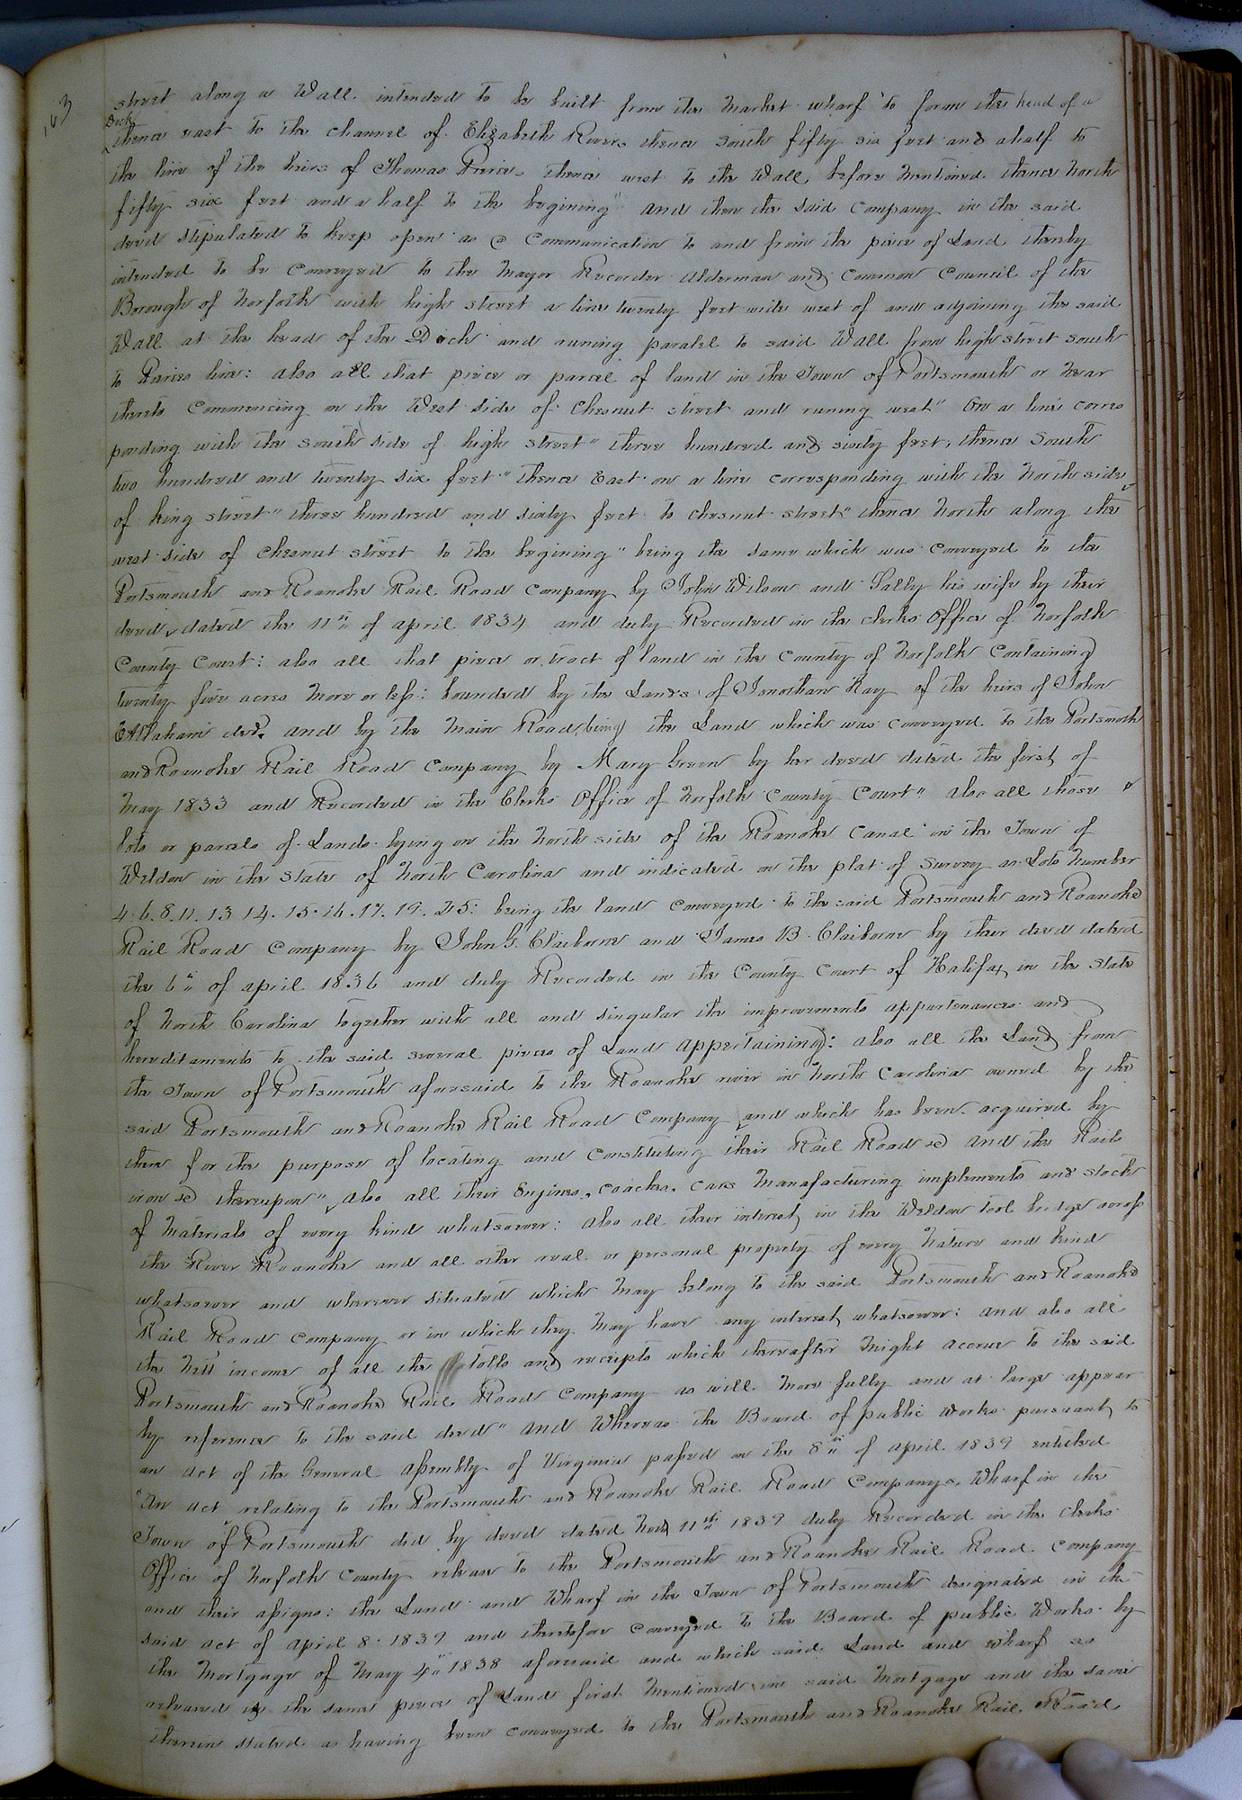 163
street along a Wall intended to be built from the Market wharf to form the head of a
Dock
thence east to the channel of Elizabeth River thence south fifty six feet and a half to
the line of the heirs of Thomas Price thence west to the Wall before mentioned thence North
fifty six feet and a half to the begining" and then the said Company in the said
deed stipulated to keep open as a Communication to and from the piece of Land thereby
intended to be Conveyed to the Mayor Recorder Alderman and Common Council of the
Borough of Norfolk with high street a line twenty feet wide west of and adjoining the said
Wall at the head of the Dock and runing paralel to said Wall from high street south
to Prices line: also all that piece or parcel of land in the Town of Portsmouth or near
thereto Commencing on the West side of Chesnut street and runing west" on a line corres
ponding with the south side of high street" three hundred and sixty feet, thence South
two hundred and twenty six feet" thence East on a line corresponding with the North side
of king street" three hundred and sixty feet to chesnut street" thence North along the
west side of Chesnut street to the begining" being the same which was conveyed to the
Portsmouth and Roanoke Rail Road Company by John Wilson and Sally his wife by their
deed dated the 11th of april 1834 and duly Recorded in the clerks Office of Norfolk
County Court: also all that piece or tract of land in the County of Norfolk Containing
twenty five acres more or less: bounded by the Lands of Jonathan Kay of the heirs of John
decd. and by the Main Road, being the Land which was conveyed to the Portsmouth
and Roanoke Rail Road Company by Mary Green by her deed dated the first of
May 1833 and Recorded in the Clerks Office of Norfolk County Court" also all those
lots or parcels of Lands lying on the North side of the Roanoke Canal in the Town of
Weldon in the state of North Carolina and indicated on the plat of survey as Lots Number
4. 6. 8. 11. 13 14. 15. 16. 17. 19. 25: being the land conveyed to the said Portsmouth and Roanoke
Rail Road Company by John G. Claiborne and James B. Claiborne by their deed dated
the 6th of april 1836 and duly Recorded in the County Court of Halifax in the State
of North Carolina together with all and singular the improvements appertenances and
hereditaments to the said several pieces of Land appertaining: also all the Land from
the Town of Portsmouth aforesaid to the Roanoke river in North Carolina owned by the
said Portsmouth and Roanoke Rail Road Company and which has been acquired by
them for the purpose of locating and constituting their Rail Road &c and the Rail
iron &c thereupon" also all their Engines, coaches, cars Manufacturing implements and stock
of Materials of every kind whatsoever: also all their interest in the Weldon toll bridge across
the River Roanoke and all other real or personal property of every Nature and kind
whatsoever and wherever situated which may belong to the said Portsmouth and Roanoke
Rail Road Company or in which they may have any interest whatsoever: and also all
the nett income of all the tolls and receipts which thereafter might accrue to the said
Portsmouth and Roanoke Rail Road Company as will more fully and at large appear
by reference to the said deed" and Whereas the Board of public works pursuant to
an act of the General Assembly of Virginia passed on the 8th of April 1839 entitled
"An act relating to the Portsmouth and Roanoke Rail Road Companys Wharf in the
Town of Portsmouth did by deed dated 11th 1839 duly Recorded in the clerks
Office of Norfolk County release to the Portsmouth and Roanoke Rail Road Company
and their assigns: the Land and Wharf in the Town of Portsmouth designated in the
said act of April 8. 1839 and theretofore conveyed to the Board of public Works by
the Mortgage of May 4th 1838 aforesaid and which said Land and wharf so
released is the same piece of Land first Mentioned in said Mortgage and the same
therein stated as having been conveyed to the Portsmouth and Roanoke Rail Road